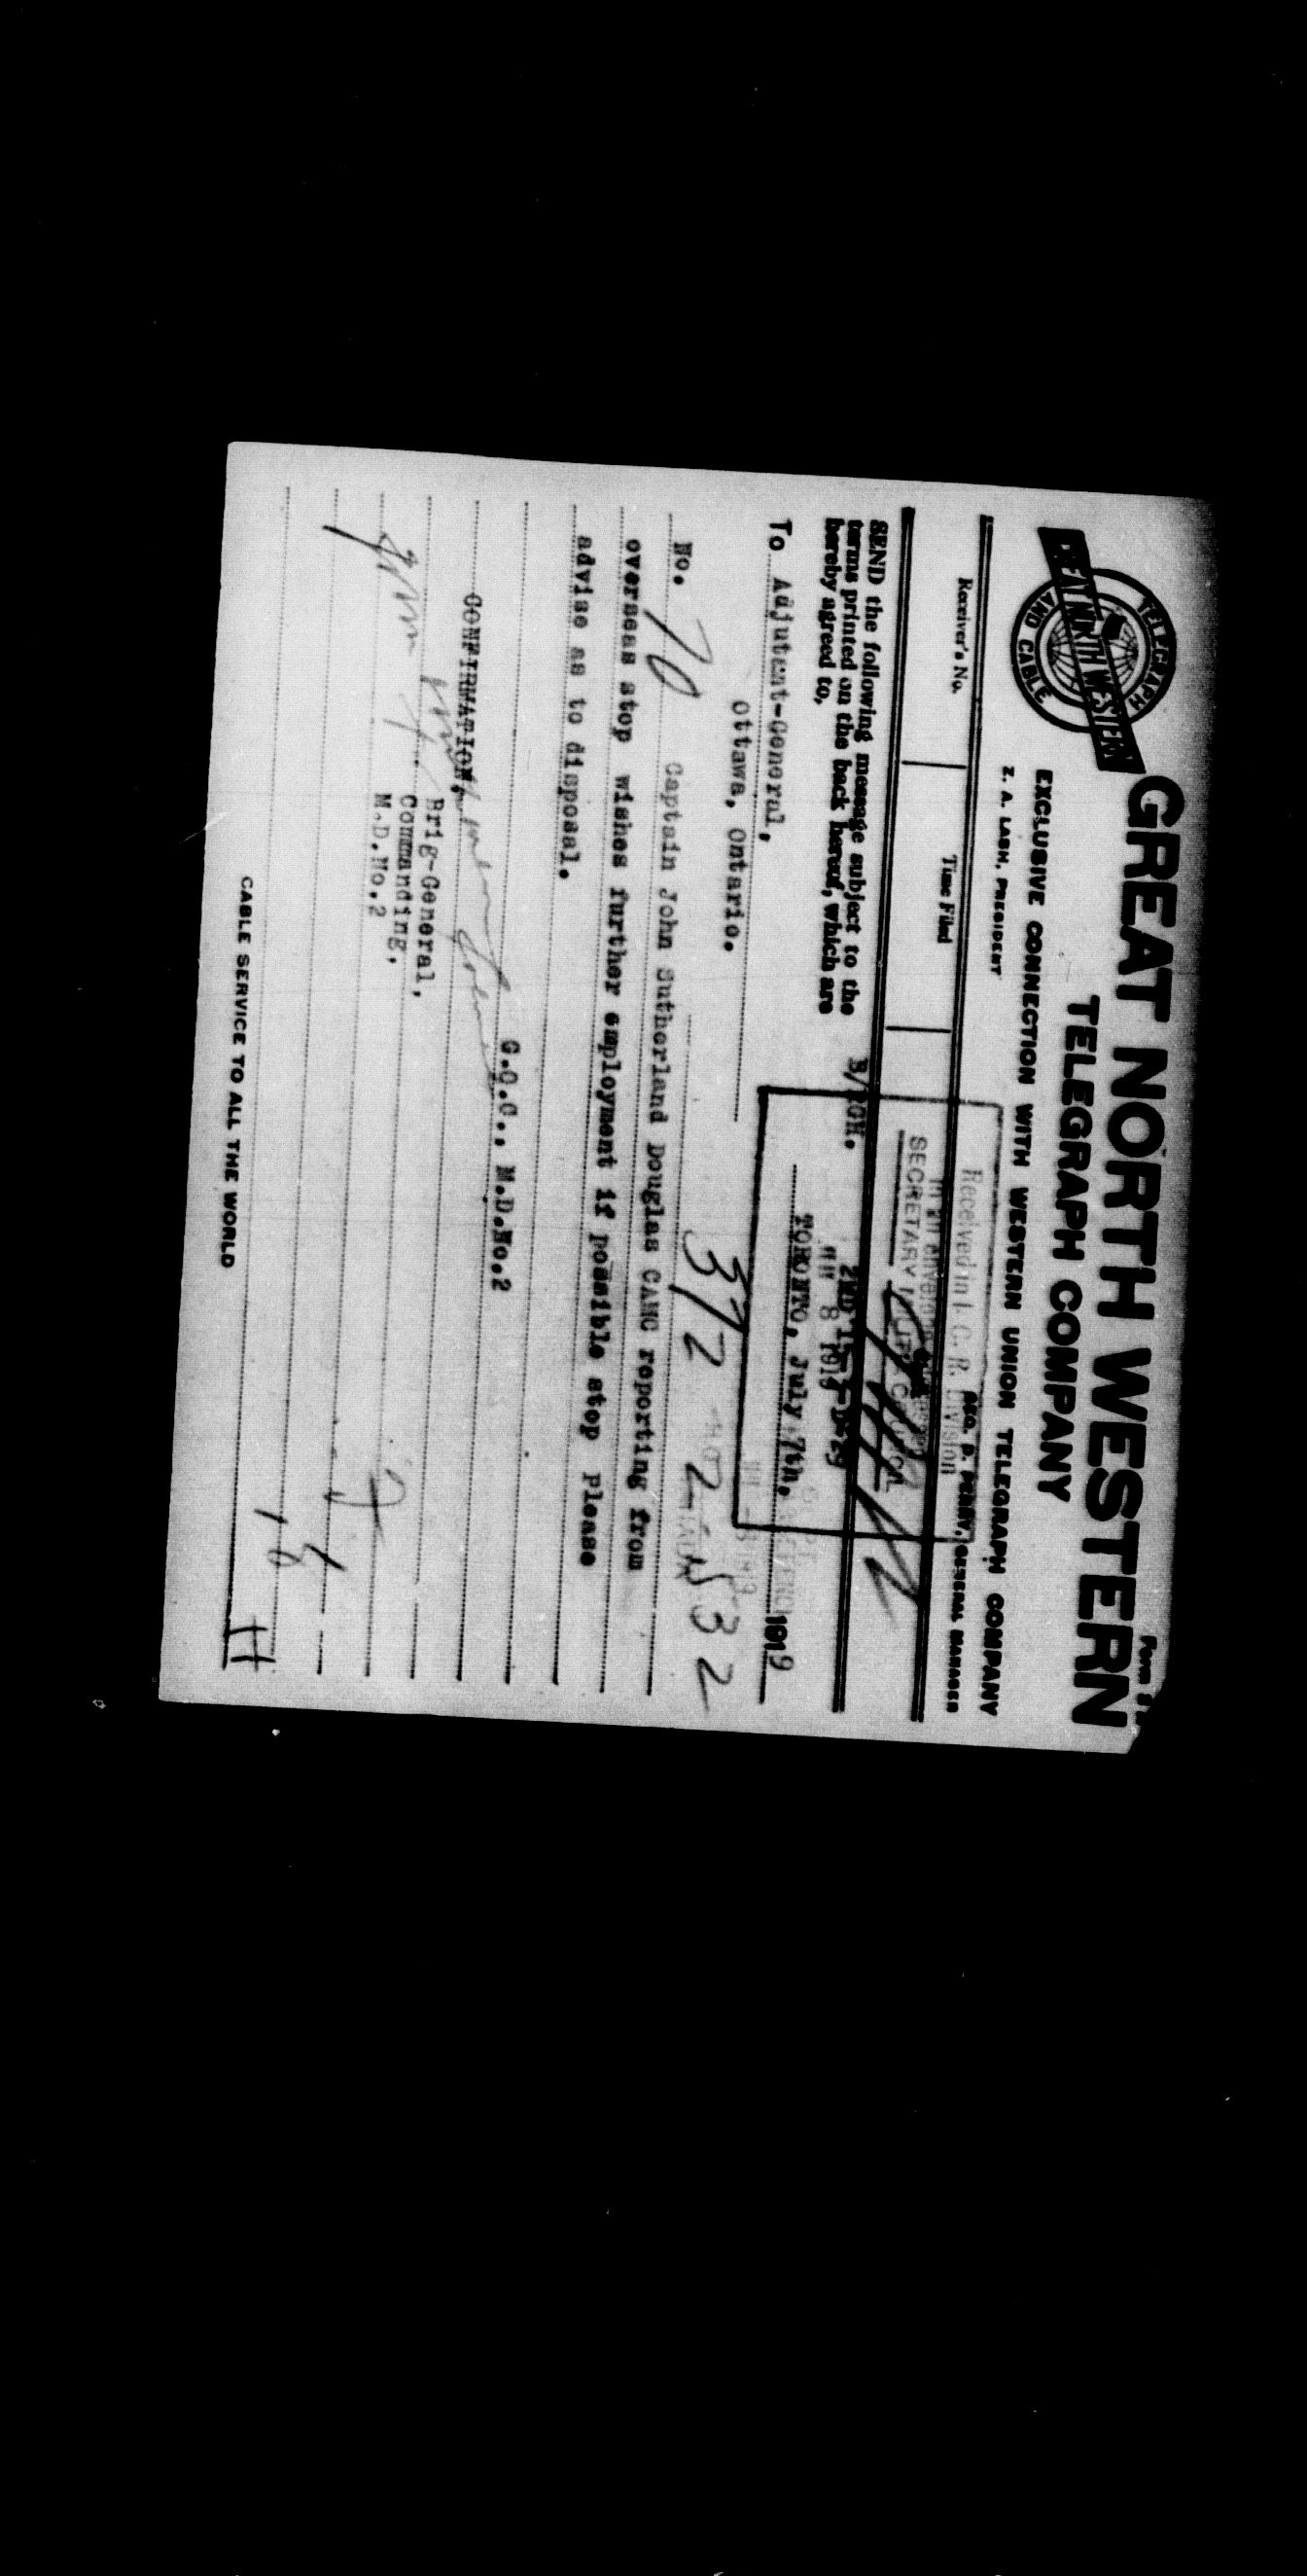 GREAT NORTH WESTERN
TELEGRAPH COMPANY
TELEGRAPH
GREAT NORTH WESTERN
AND CABLE
EXCLUSIVE CONNECTION WITH WESTERN UNION TELEGRAPH COMPANY
Z. A. LASH, PRESIDENT
GEO. D. PERRY, GENERAL MANAGER
Receiver's No.
Time Filed
Received in I. C. R. Division
SECRETARY
SEND the following message subject to the
terms printed on the back hereof, which are
hereby agreed to,
8 1919
TORONTO, July 7th, 1919
To Adjutant-General,
Ottawa, Ontario.
372
No. 70
Captain John Sutherland Douglas CAMC reporting from
overseas stop wishes further employment if possible stop please
advise as to disposal.
G.O.C., M.D.No.2
CONFIRMATION,
Brig-General,
Commanding,
M.D.No.2
CABLE SERVICE TO ALL THE WORLD